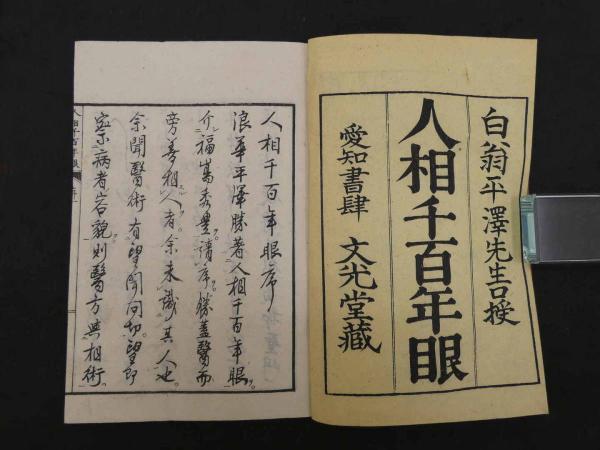 白翁平澤先生口授
人相千百年眼
愛知書肆 文光堂藏
人相千百年眼序
浪華平澤勝著人相千百年眼
介福嵩秀豊請序勝蓋醫而
旁善相人者余未識其人也
余聞醫術有望聞問切望即
察病者容貌則醫方與相術